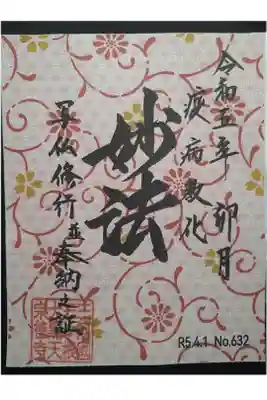 令和五年 卯月
疫病教化
妙法
写仏修行並奉納之証
R5.4.1 No.632